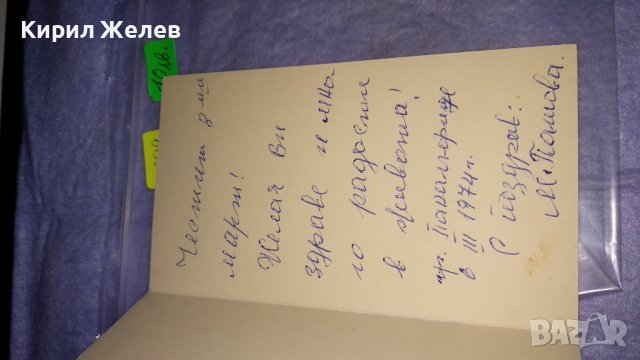 Кирил Желев
19лв.
Честит 8ми
март!
Желая Ви
здраве и мно-
го радостни
в живота!
гр. Панагюрище
III 1974 г.
С поздрав:
М. Ташова.
BAZAR